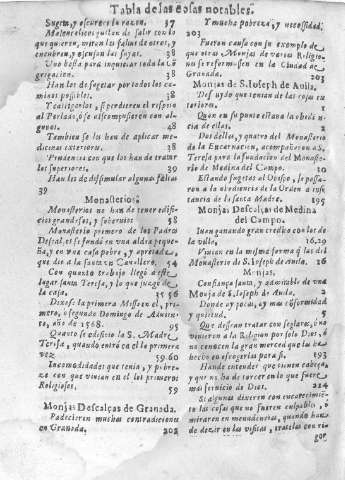 Tabla de las cosas notables.
Sugeta, y escurece la razon. 37
Malencolicos gustan de salir con lo
que quieren, miran las faltas de otros, y
encubren, y escusan las suyas. 38
Vno basta para inquietar toda la Cō
gregacion. 38
Han les de sugetar por todos los ca
minos possibles. 38
Y castigarlos, si perdieren el respeto
al Perlado, o se descompusieren con al-
gunos. 38
Tambien se les han de aplicar me-
dicinas exteriores. 38
Prudencia con que los han de tratar
los superiores. 39
Han les de dissimular algunas faltas
39
Monasterio.
Monasterios no han de tener edifi-
cios grandes, y soberuios 58
Monasterio primero de los Padres
Descal. se se fundò en vna aldea peque-
ña, y en vna casa pobre, y apretada,
que dio a la santa vn Cauallero. 54
Con quanto trabajo llegò a este
lugar santa Teresa, y lo que juzgò de
la casa. 55.56
Dixose la primera Missa en el, pri-
mero, o segundo Domingo de Aduien-
to, año de 1568. 95
Quanto se edificò la S. Madre
Teresa, quando entrò en el la primera
vez 59.60
Incomodidades que tenia, y pobre-
za con que viuian en el los primeros
Religiosos. 59
Monjas Descalças de Granada.
Padecieron muchas contradiciones
en Granada. 202
Y mucha pobreza, y necessidad.
203
Fueron causa con su exemplo de
que otras Monjas de varias Religio-
nes se reformassen en la Ciudad de
Granada. 203
Monjas de S. Joseph de Auila.
Desuydo que tenian de las cosas ex-
teriores. 1
Quan en su punto estaua la obediẽ
cia de ellas. 2
Dos dellas, y quatro del Monasterio
de la Encarnacion, acompañaron a S.
Teresa para la fundacion del Monaste-
rio de Medina del Campo. 10
Estando sugetas al Obispo, se passa-
ron a la obediencia de la Orden a ins-
tancia de la santa Madre. 195
Monjas Descalças de Medina
del Campo.
Iuan ganando gran credito con los de
la villa. 16.29
Viuian en la misma forma q̃ las del
Monasterio de S. Joseph de Auila. 16
Monjas.
Confiança santa, y admirable de vna
Monja de S. Joseph de Auila. 2
Donde ay pocas, ay mas cõformidad
y quietud. 5
Que dessean tratar con seglares, o no
vinieron a la Religion por solo Dios, ò
no conocen la gran merced que les ha
hecho en escogerlas para si. 193
Han de entender que tienen cabeça,
y que no ha de tercer en lo que fuere
mas seruicio de Dios. 224
Si algunas dixeren con encarecimiẽ
to las cosas que no fueren culpables, ò
miraren en menudencias, quando han
de dezir en las visitas, tratelas con ri-
gor